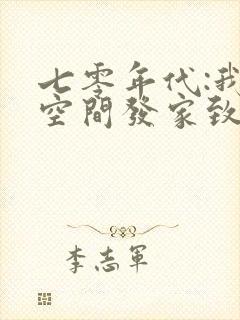 七零年代:我
空間發家致
李志軍